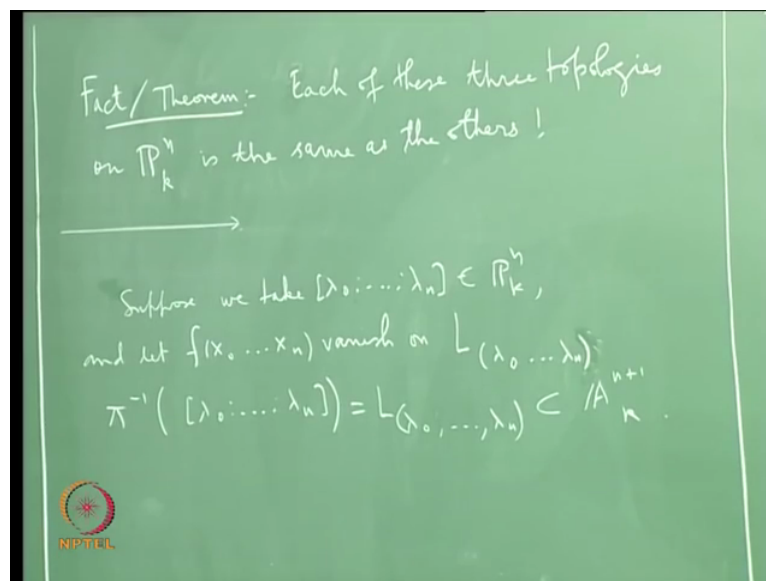 Fact/Theorem:- Each of these three topologies
on ℙⁿₖ is the same as the others !
Suppose we take [λ₀:...:λₙ] ∈ ℙⁿₖ,
and let f(x₀ ... xₙ) vanish on L_(λ₀ ... λₙ)
π⁻¹([λ₀:...:λₙ]) = L_(λ₀,...,λₙ) ⊂ 𝔸ⁿ⁺¹ₖ .
NPTEL